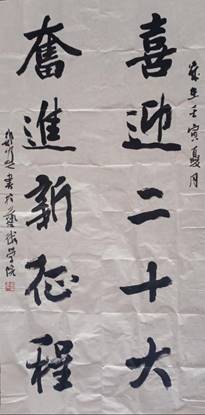 歲在壬寅夏月
喜迎二十大
奮進新征程
書於藝術學院